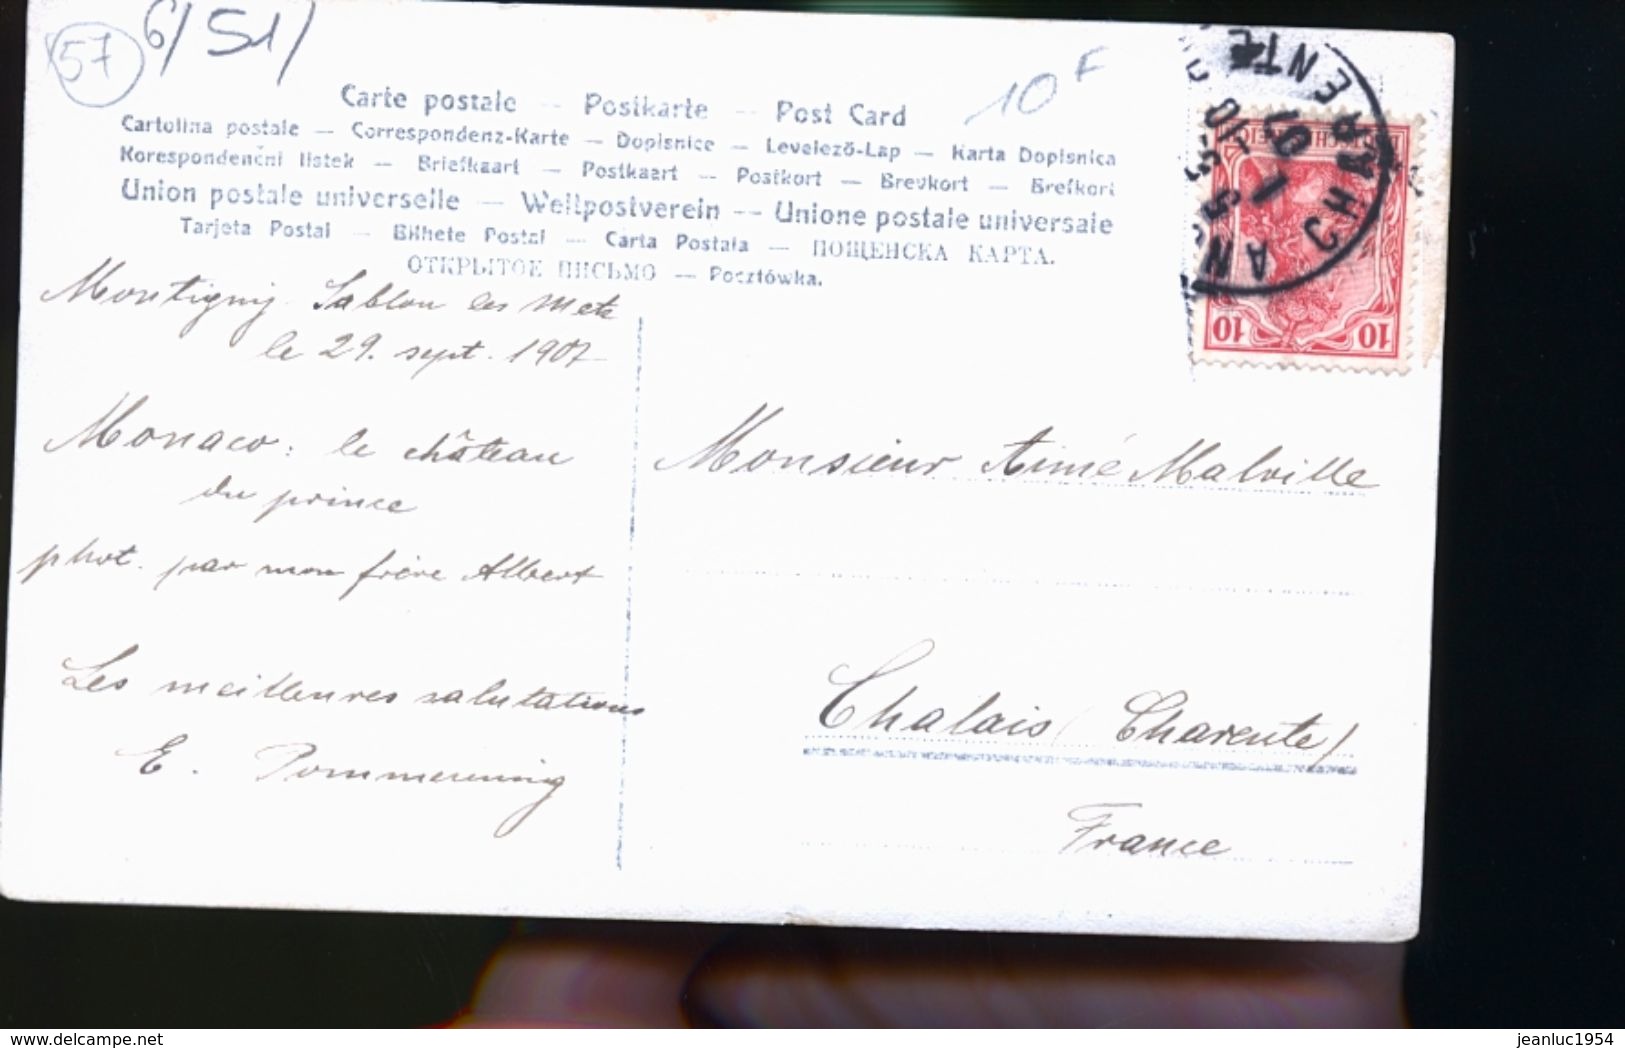 57
6/51/
10F
Carte postale — Postkarte — Post Card
Cartolina postale — Correspondenz-Karte — Dopisnice — Levelező-Lap — Karta Dopisnica
Korespondenční lístek — Briefkaart — Postkaart — Postkort — Brevkort — Brefkort
Union postale universelle — Weltpostverein -- Unione postale universale
Tarjeta Postal — Bilhete Postal — Carta Postala — ПОЩЕНСКА КАРТА.
ОТКРЫТОЕ ПИСЬМО — Pocztówka.
CHARENTE
10 10
Montigny-Sablon les Metz
le 29. sept. 1907
Monaco: le château
du prince
phot. par mon frère Albert
Les meilleures salutations
E. Pommerening
Monsieur Aimé Malville
Chalais (Charente)
France
jeanluc1954
www.delcampe.net